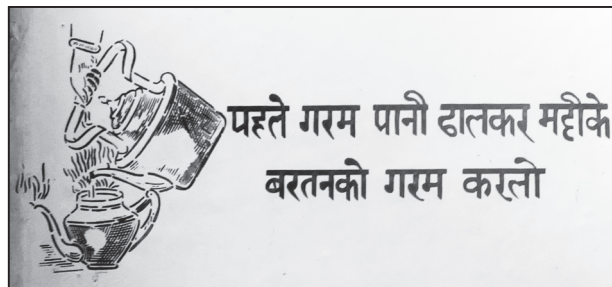 पहले गरम पानी ढालकर मट्टीके
बरतनको गरम करलो